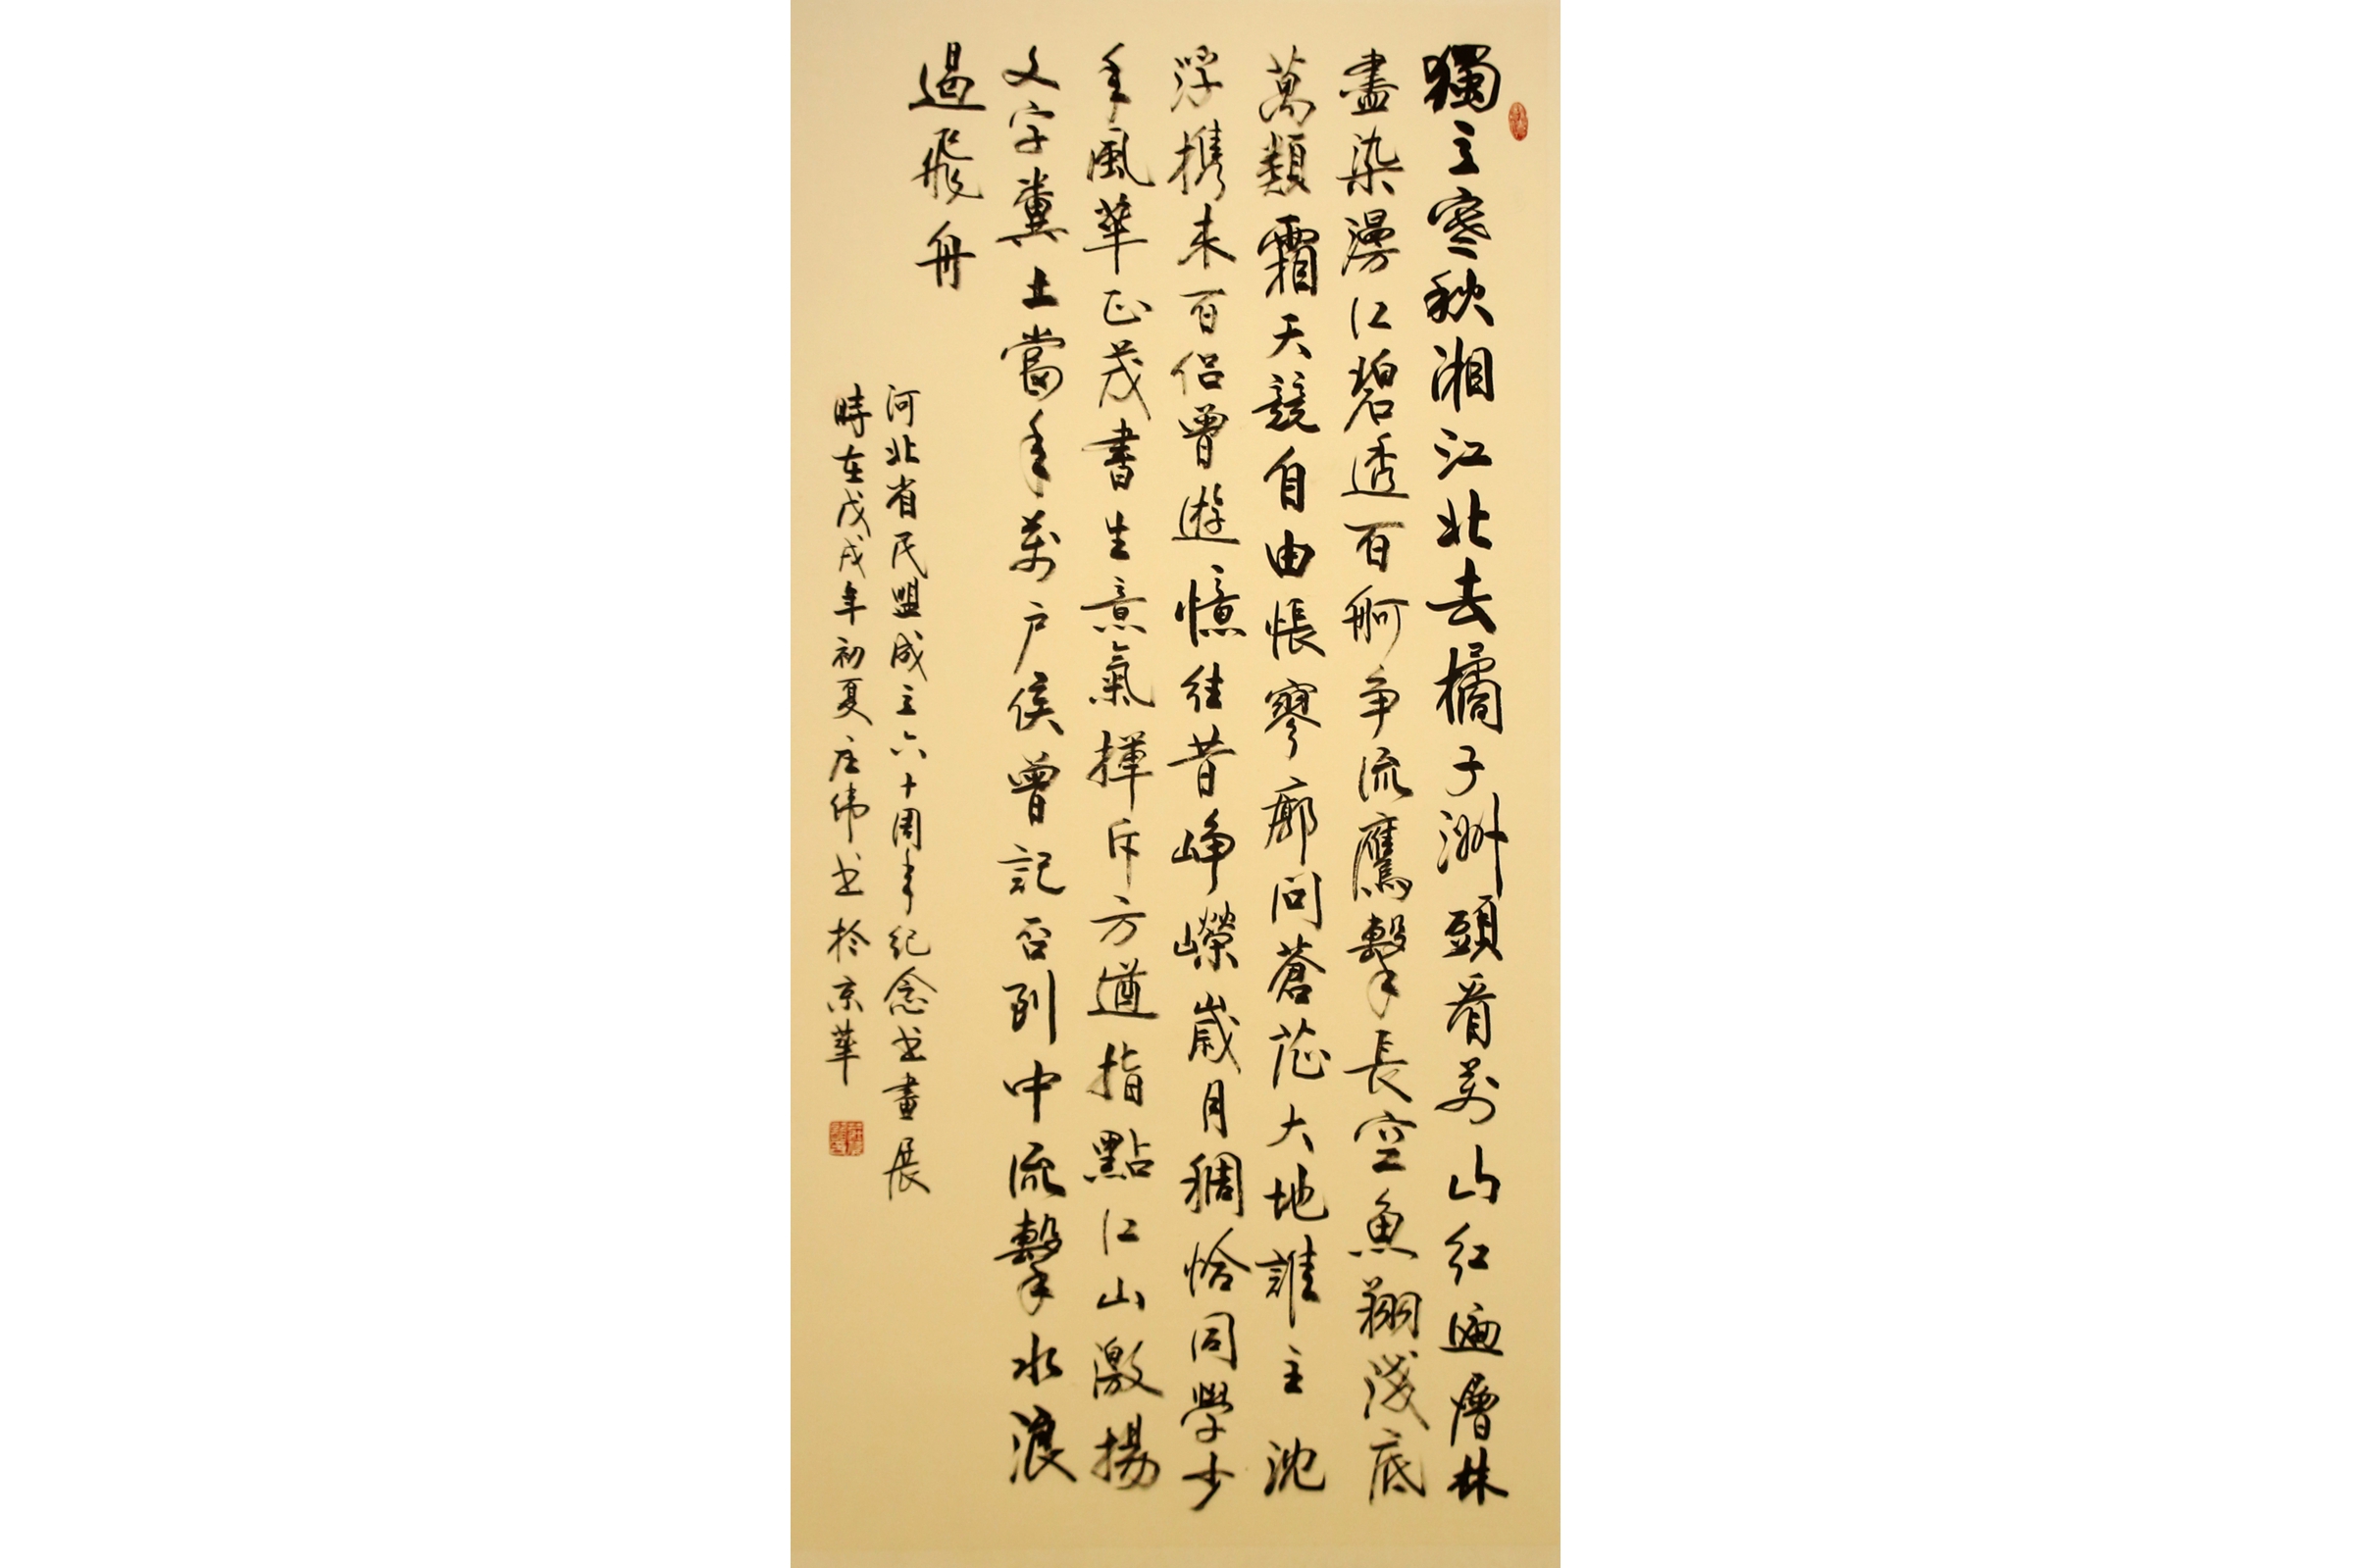 獨立寒秋湘江北去橘子洲頭看萬山紅遍層林
盡染漫江碧透百舸争流鷹擊長空魚翔淺底
萬類霜天競自由悵寥廓問蒼茫大地誰主沈
浮携来百侣曾遊憶往昔崢嶸嵗月稠恰同學少
年風華正茂書生意氣揮斥方遒指點江山激揚
文字糞土當年萬户侯曾記否到中流擊水浪
遏飛舟
河北省民盟成立六十周年纪念书畫展
時在戊戌年初夏庄伟书於京華